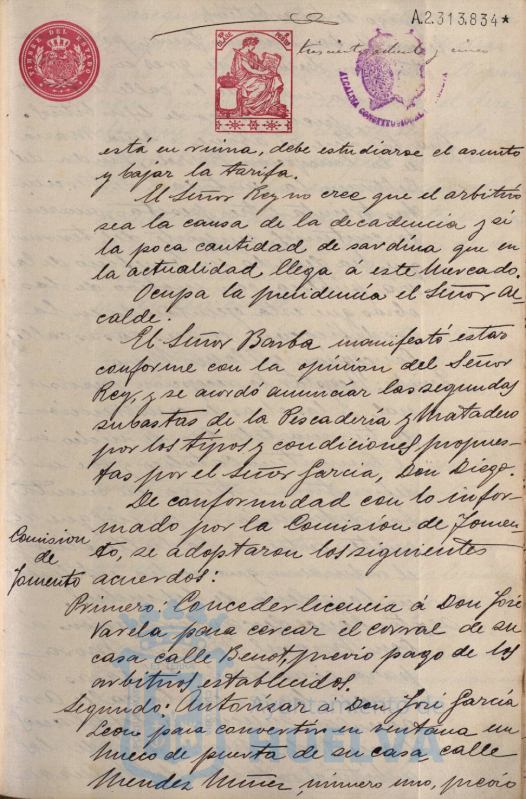 A.2.313.834*
TIMBRE DEL ESTADO
trescientos ochenta y cinco
ALCALDIA CONSTITUCIONAL
está en ruina, debe estudiarse el asunto
y bajar la tarifa.
El Señor Rey no cree que el arbitrio
sea la causa de la decadencia y si
la poca cantidad de sardina que en
la actualidad llega á este Mercado.
Ocupa la presidencia el Señor Al-
calde.
El Señor Barba manifestó estar
conforme con la opinion del Señor
Rey, y se acordó anunciar las segundas
subastas de la Pescadería y Matadero
por los tipos y condiciones propues-
tas por el Señor Garcia, Don Diego.
De conformidad con lo infor-
mado por la Comision de Fomen-
to, se adoptaron los siguientes
acuerdos:
Comision
de
Fomento
Primero: Conceder licencia á Don José
Varela para cercar el corral de su
casa calle Benot, previo pago de los
arbitrios establecidos.
Segundo: Autorizar á Don José García
Leon para convertir en ventana un
hueco de puerta de su casa calle
Mendez Nuñez, número uno, previo